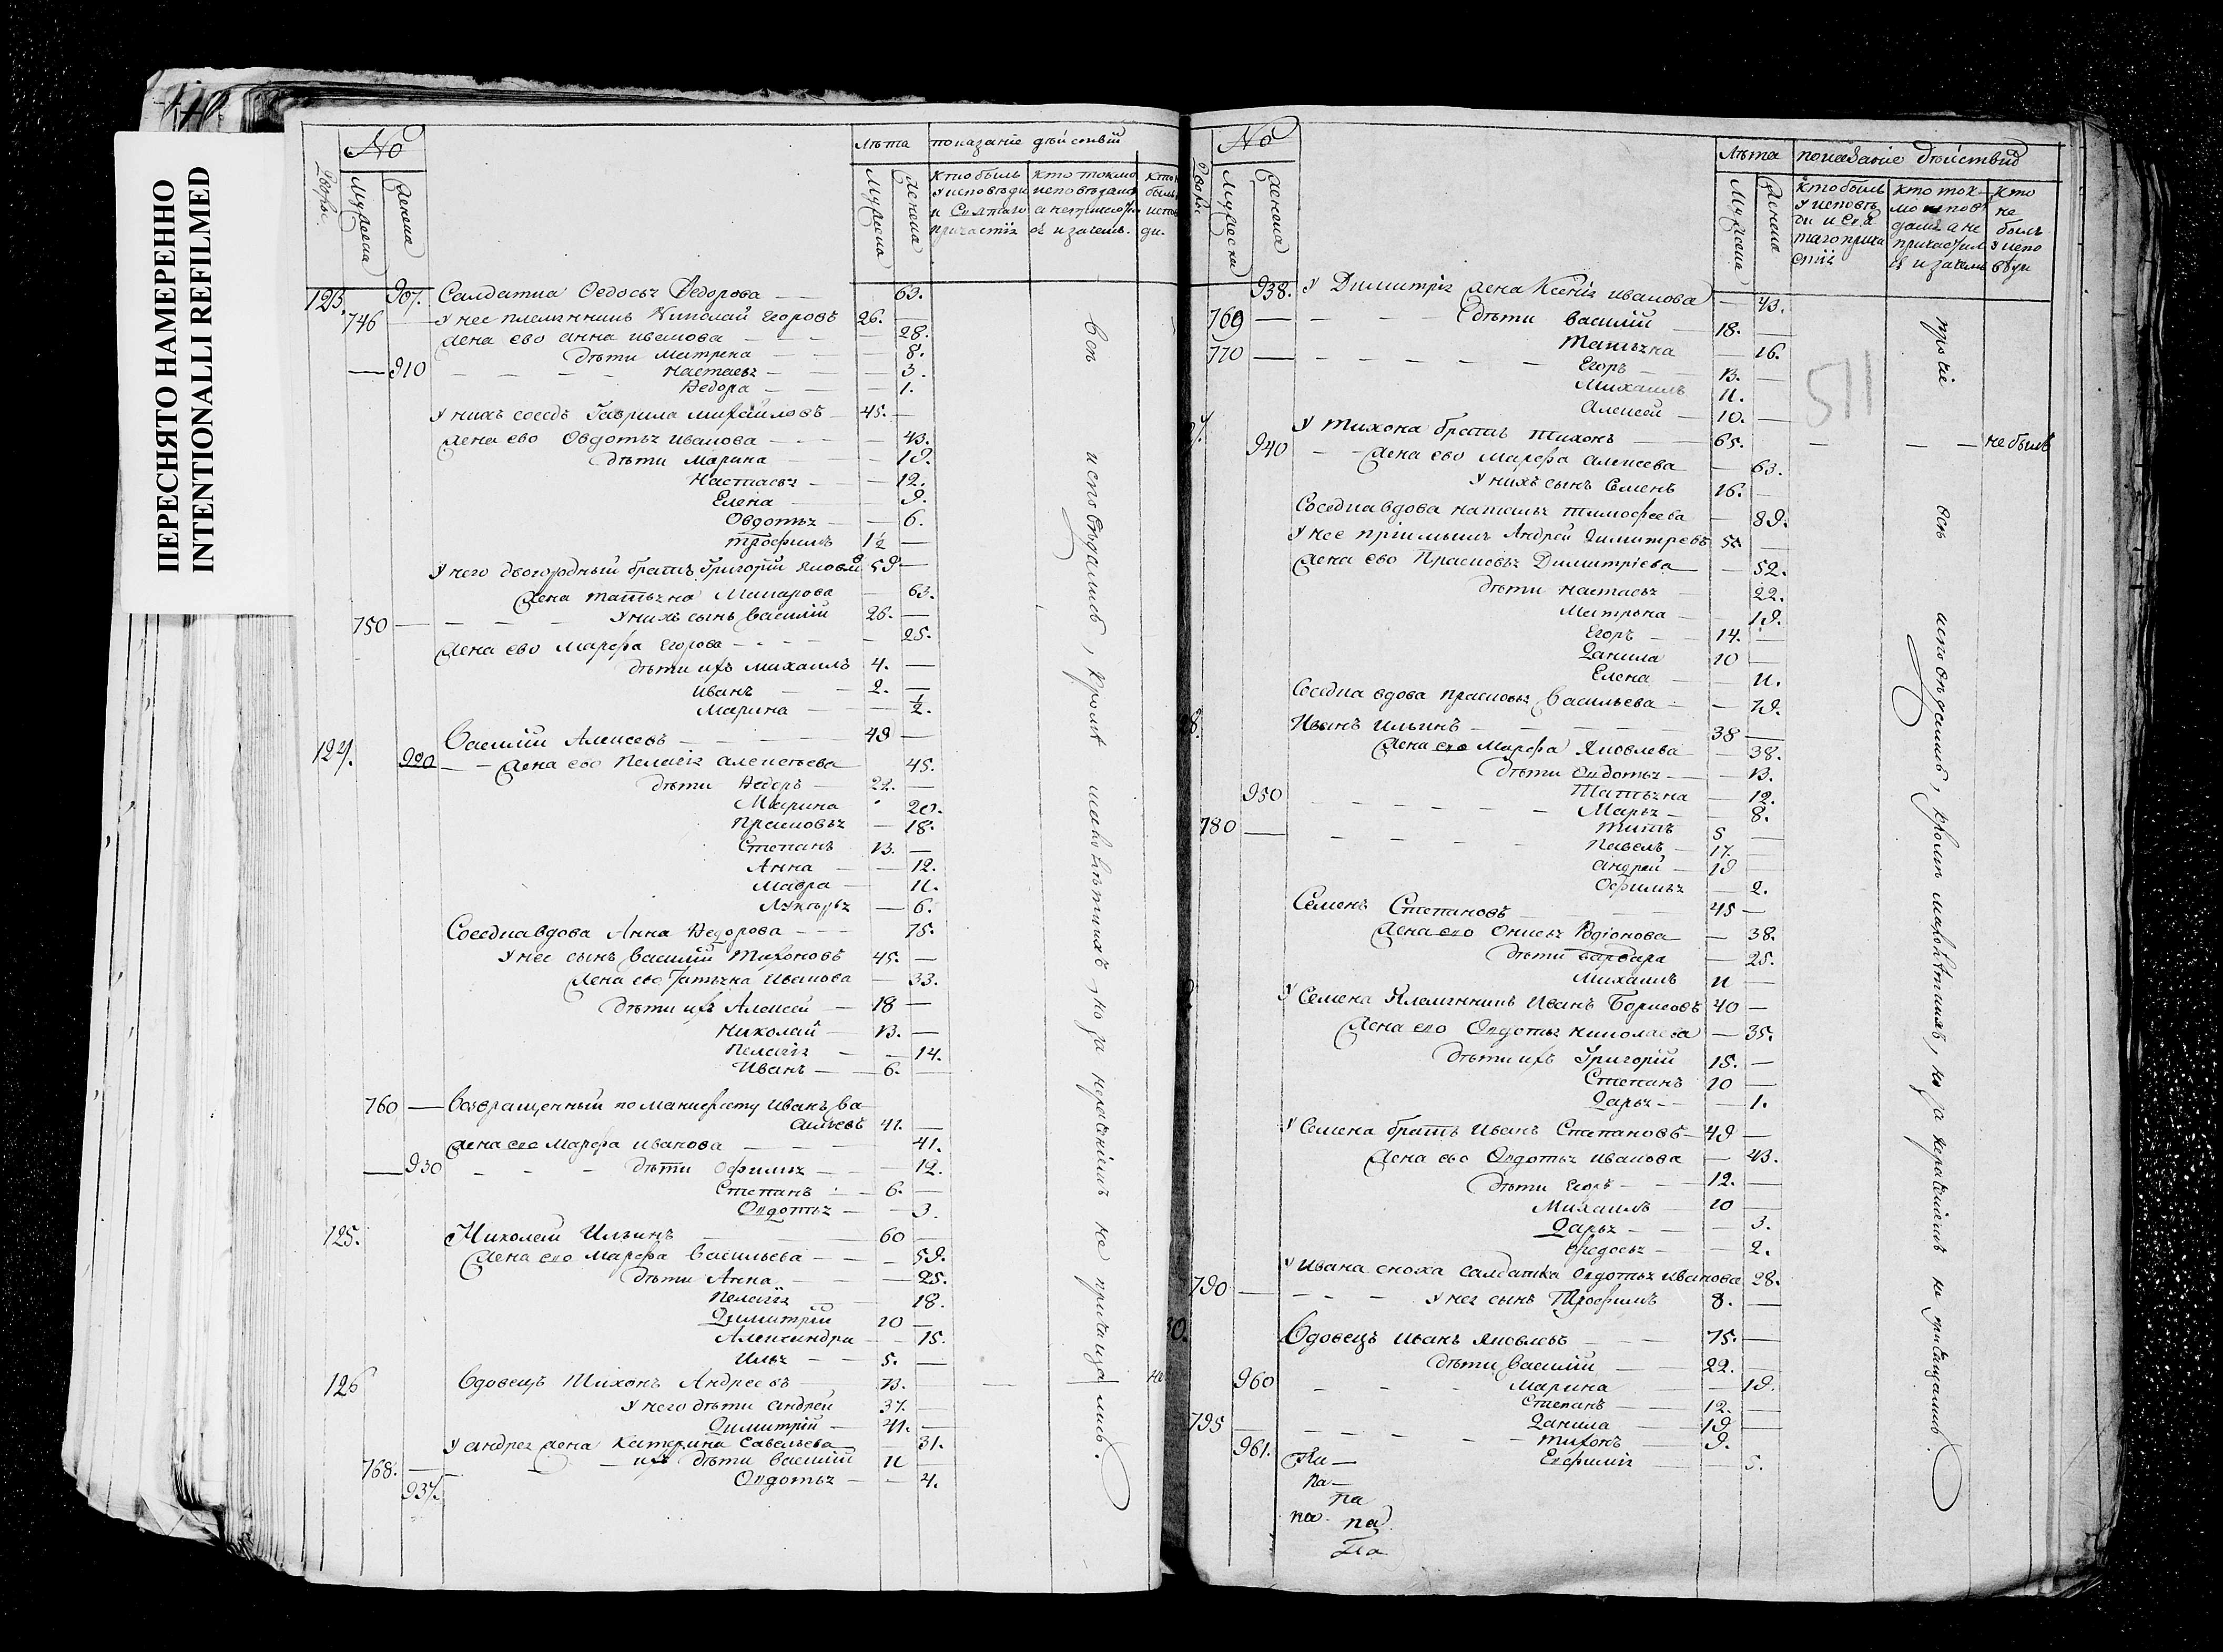 ПЕРЕСНЯТО НАМЕРЕННО
INTENTIONALLI REFILMED
№ лѣта показаніе дѣйствій
Дворы. Мужеска Женска Мужеска Женска
кто былъ у исповѣди и святаго причастія
кто токмо исповѣдался а не причастился и зачемъ.
123. 907. Салдатка Федосья Федорова 63.
746 У нее племянникъ Николай Егоровъ 26.
Жена ево Анна Иванова 28.
Дѣти Матрена 8.
910 Настасья 3.
Федора 1.
У нихъ соседъ Гаврила Михайловъ 45.
Жена ево Овдотья Иванова 43.
Дѣти Марина 19.
Настасья 12.
Елена 9.
Овдотья 6.
Трофимъ 1½
У него двоюродный братъ Григорій Яковлѣ 59
Жена Татьяна Макарова 63.
750 У нихъ сынъ Василій 26.
Жена ево Марфа Егорова 25.
Дѣти ихъ Михаилъ 4.
Иванъ 2.
Марина ½.
124. Василій Алексеевъ 49
920 Жена ево Пелагія Алексеева 45.
Дѣти Федоръ 22.
Марина 20.
Прасковья 18.
Степанъ 13.
Анна 12.
Мавра 11.
Лукерья 6.
Соседка вдова Анна Федорова 75.
У нее сынъ Василій Тихоновъ 45.
Жена ево Татьяна Иванова 33.
Дѣти ихъ Алексей 18
Николай 13.
Пелагія 14.
Иванъ 6.
760 Возвращенный по манифесту Иванъ Ва
сильевъ 41.
Жена ево Марфа Иванова 41.
930 Дѣти Офимья 12.
Степанъ 6.
Овдотья 3.
125. Николай Ильинъ 60
Жена ево Марфа Васильева 59.
Дѣти Анна 25.
Пелагія 18.
Димитрій 20
Александра 15.
Илья 5.
126 Вдовецъ Тихонъ Андреевъ 73.
У него дѣти Андрей 37.
Димитрій 41.
У Андрея жена Катерина Савельева 31.
768. ихъ дѣти Василій 11
937. Овдотья 4.
всѣ исповѣдались, кромѣ малолѣтнихъ, но за нераченіемъ не причащались.
№ лѣта показаніе дѣйствій
Дворы Мужеска Женска Мужеска Женска
кто былъ у исповѣди и святаго причастія
кто токмо исповѣдался а не причастился и зачемъ
кто не былъ у исповѣди
938. У Димитрія жена Ксенія Иванова 43.
769 Дѣти Василій 18.
Татьяна 16.
770 Егоръ 13.
Михаилъ 11.
Алексей 10.
511
У Тихона братъ Тихонъ 65. не былъ
940 Жена ево Марфа Алексеева 63.
У нихъ сынъ Семенъ 16.
Соседка вдова Наталья Тимофеева 89.
У нее пріимышъ Андрей Димитревъ 52
Жена ево Прасковья Димитріева 52.
Дѣти Настасья 22.
Матрона 19.
Егоръ 14.
Данила 10
Елена 11.
Соседка вдова Прасковья Васильева 79.
Иванъ Ильинъ 38
Жена ево Марфа Яковлева 38.
Дѣти Овдотья 13.
950 Татьяна 12.
Марья 8.
780 Титъ 5
Павелъ 17.
Андрей 19
Офимья 2.
Семенъ Степановъ 45
Жена ево Онисья Родіонова 38.
Дѣти Варвара 25.
Михаилъ 11
У Семена племянникъ Иванъ Борисовъ 40
Жена ево Овдотья Николаева 35.
Дѣти ихъ Григорій 15.
Степанъ 10
Дарья 1.
У Семена братъ Иванъ Степановъ 49
Жена ево Овдотья Иванова 43.
Дѣти Егоръ 12.
Михаилъ 10
Дарья 3.
Федосья 2.
У Ивана сноха салдатка Овдотья Иванова 28.
790 У нея сынъ Трофимъ 8.
Вдовецъ Иванъ Яковлевъ 75.
Дѣти Василій 22.
960 Марина 19.
Степанъ 12.
795 Данила 19
Тихонъ 9.
961. Евфимія 5.
па
па
па па
Па
прочіе всѣ исповѣдались, кромѣ малолѣтнихъ, но за нераченіемъ не причащались.